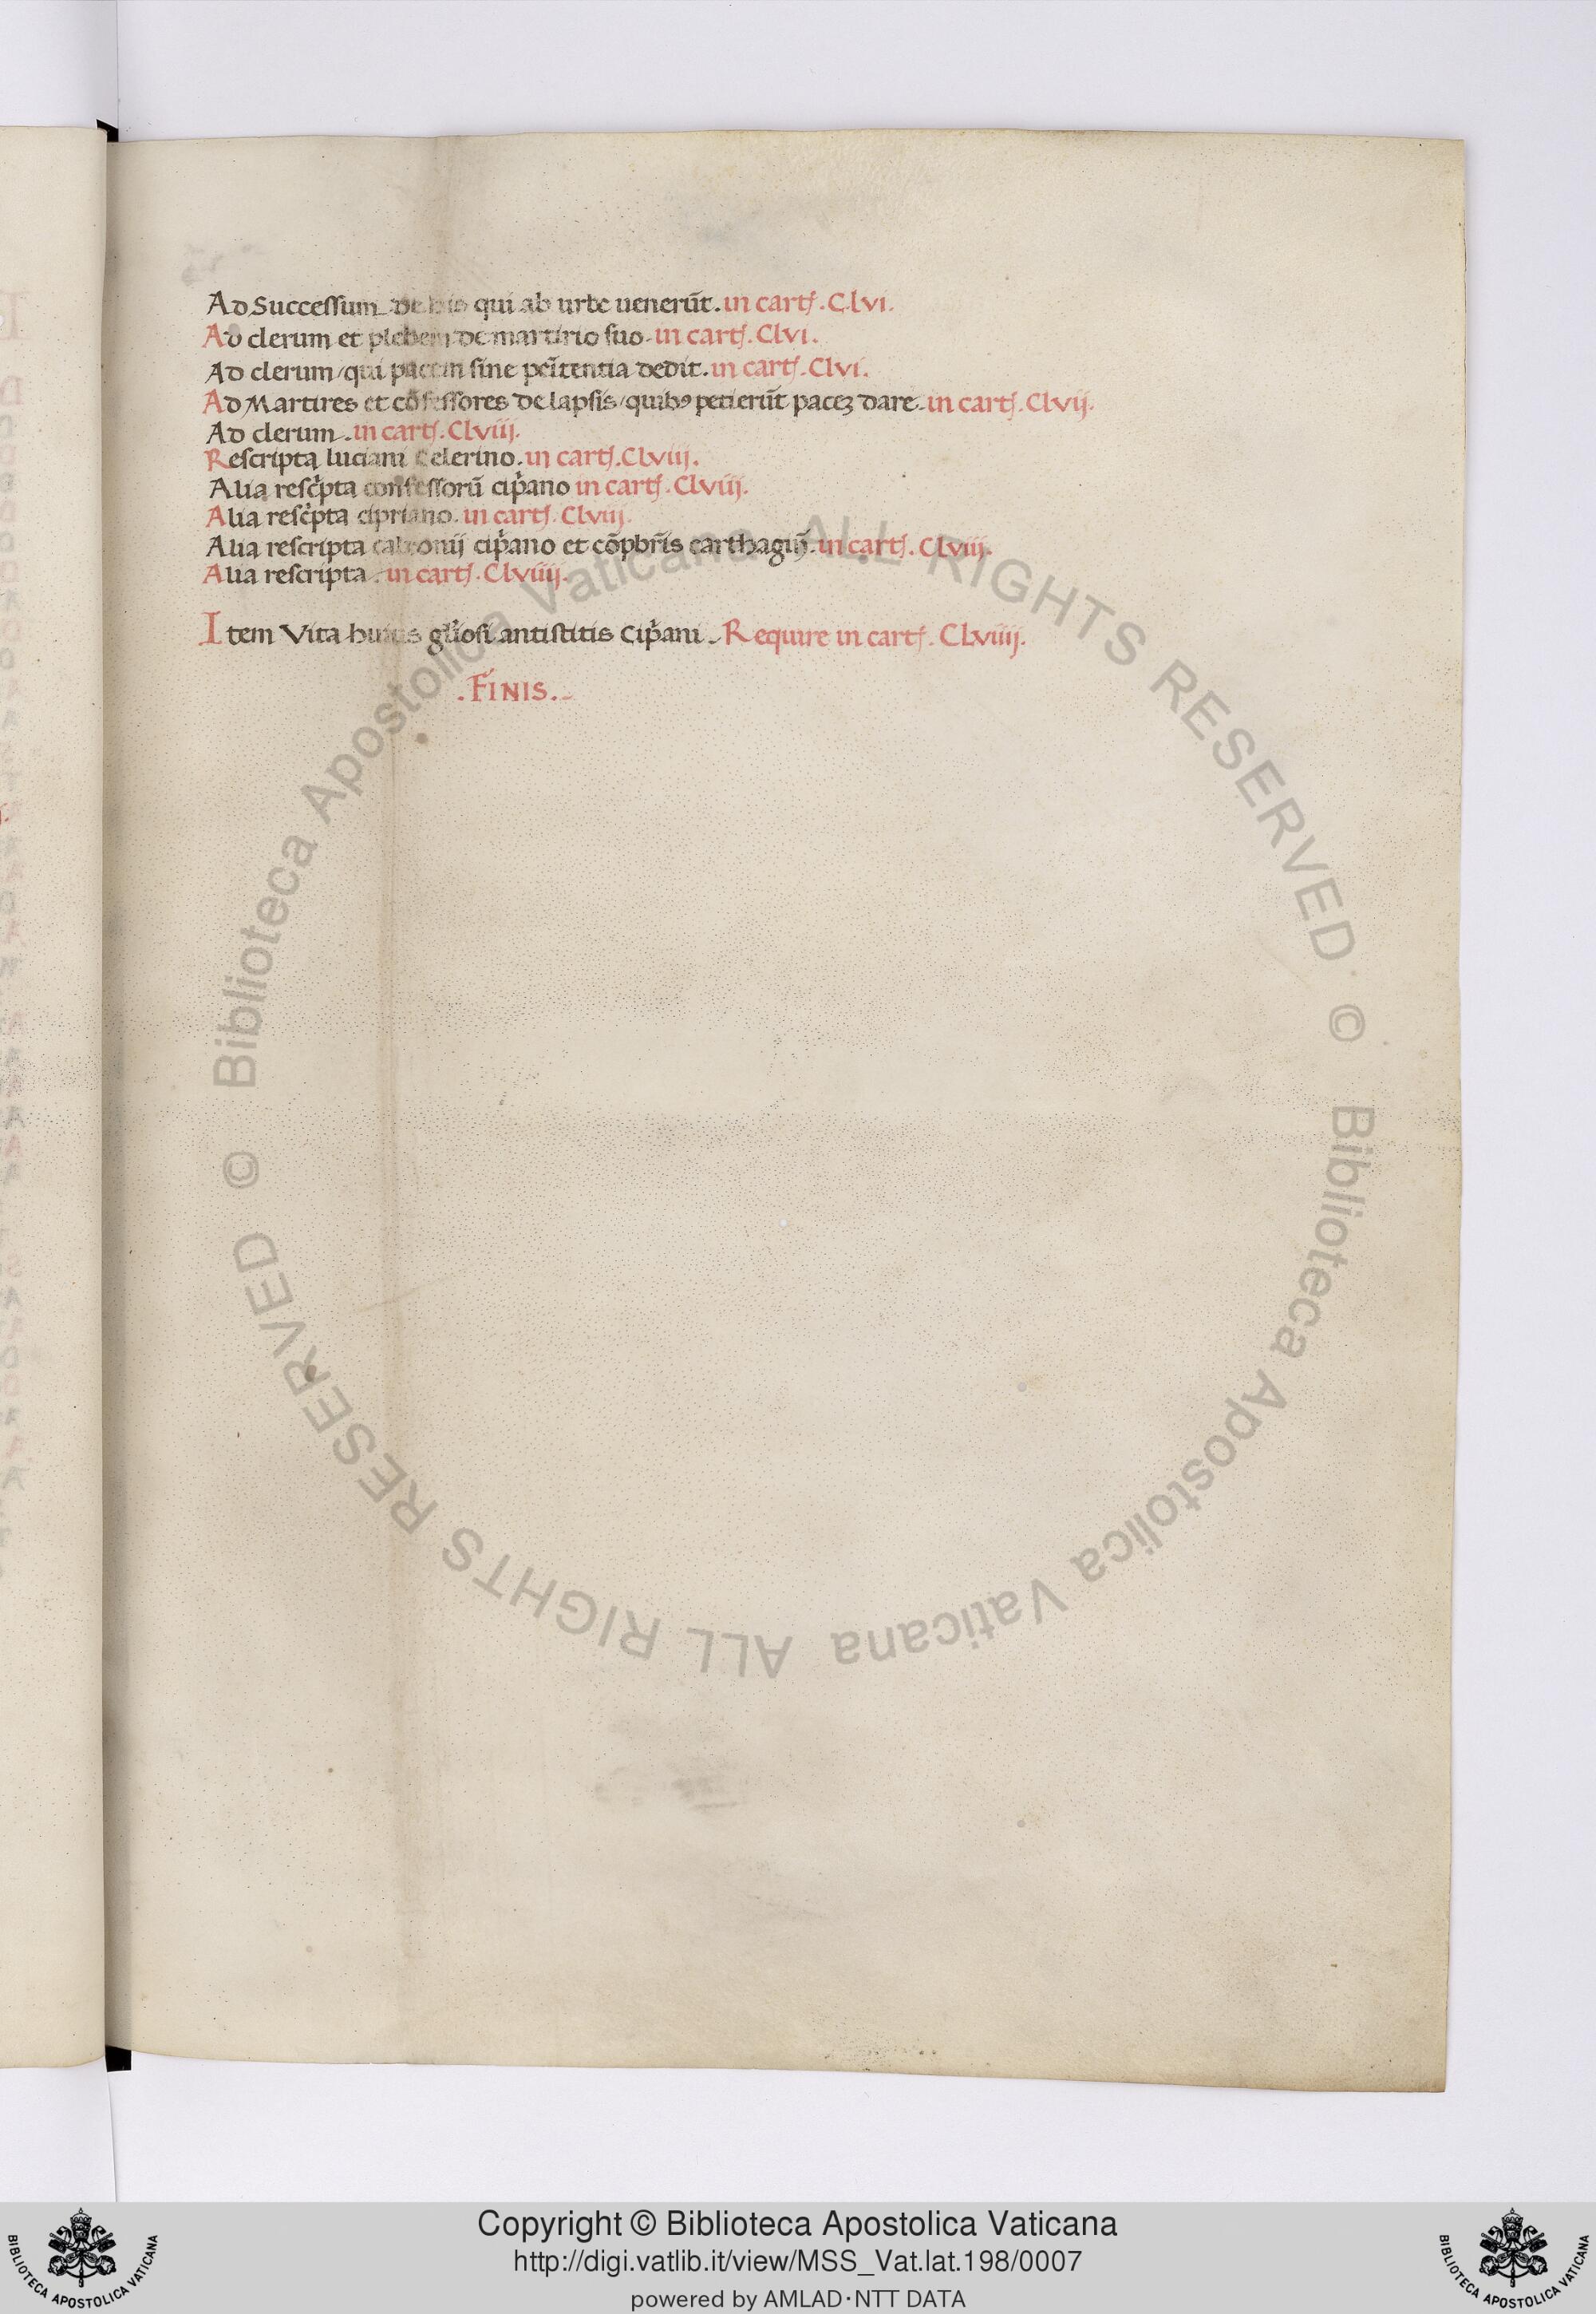 Ad Successum de his qui ab urbe uenerũt. in cartȷ. C.lvi.
Ad clerum et plebem de martirio suo. in cartȷ. Clvi.
Ad clerum / qui pacem sine pẽitentia dedit. in cartȷ. Clvi.
Ad Martires et cõfessores de lapsis / quibꝯ petierũt paceʒ dare. in cartȷ. Clvij.
Ad clerum. in cartȷ. Clviij.
Rescripta luciani Celerino. in cartȷ. Clviij.
Alia rescͥpta confessorũ cipͥano in cartȷ. Clviij.
Alia rescͥpta cipriano. in cartȷ. Clviij.
Alia rescripta caldonij cipͥano et cõpbr̃is carthagiȷ̃. in cartȷ. Clviij.
Alia rescripta. in cartȷ. Clviiij.
Item Vita huius glͥosi antistitis Cipͥani. Require in cartȷ. CLviiij.
. FINIS .
© Biblioteca Apostolica Vaticana ALL RIGHTS RESERVED
© Biblioteca Apostolica Vaticana ALL RIGHTS RESERVED
Copyright © Biblioteca Apostolica Vaticana
http://digi.vatlib.it/view/MSS_Vat.lat.198/0007
powered by AMLAD·NTT DATA
BIBLIOTECA APOSTOLICA VATICANA
BIBLIOTECA APOSTOLICA VATICANA